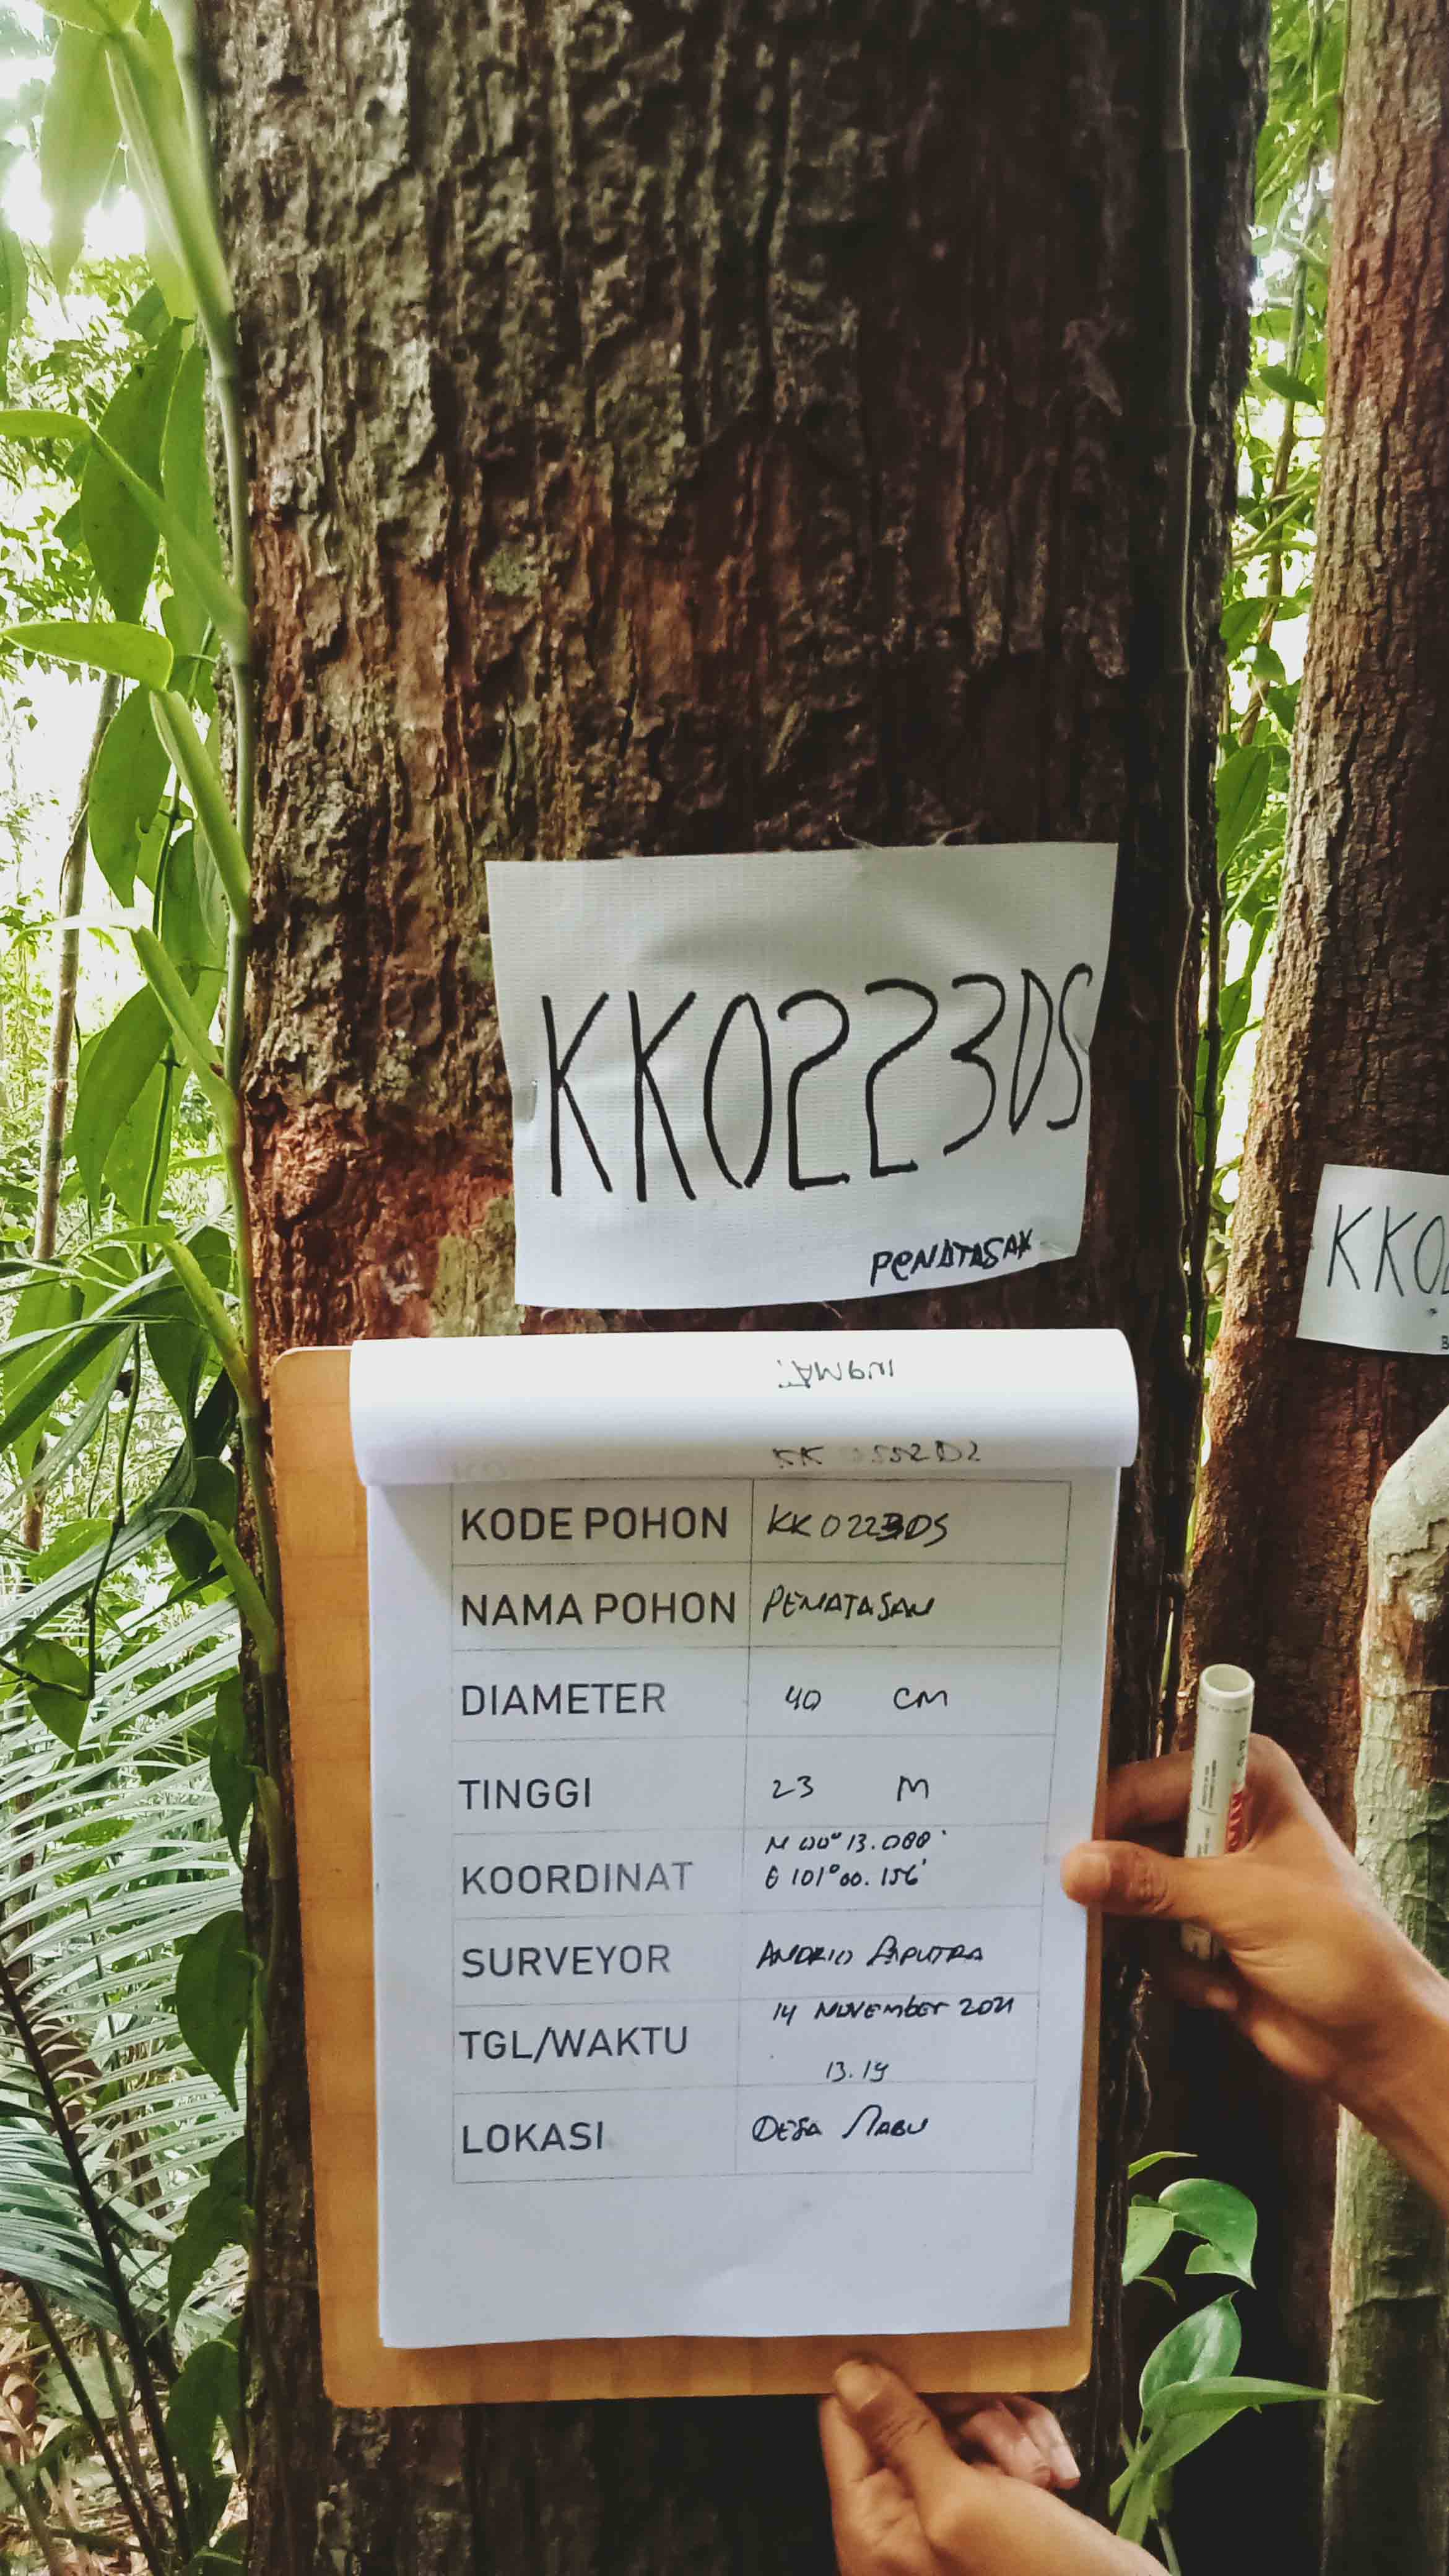 KK0223DS
PENATASAK
KK0
KODE POHON KK0223DS
NAMA POHON PENATASAN
DIAMETER 40 CM
TINGGI 23 M
KOORDINAT N 00° 13.088'
E 101° 00. 156'
SURVEYOR ANDRIO SAPUTRA
TGL/WAKTU 14 NOVEMBER 2021
13.19
LOKASI DESA